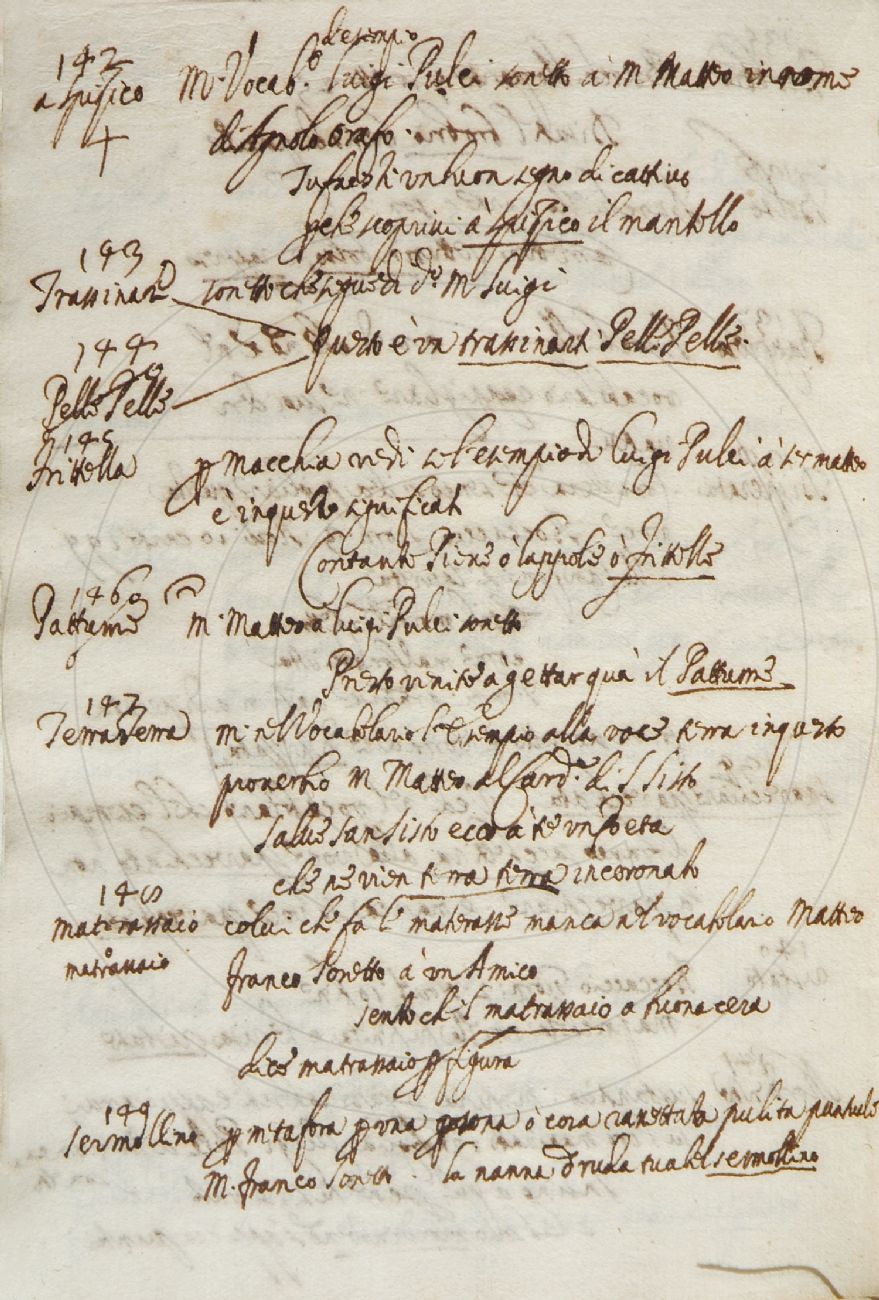 d'esempio
142
a spisico M. Vocab.º Luigi Pulci sonetto a M Matteo in nome
+ di Agnolo Orafo.
Tu facesti un buon segno di cattivo
pche scoprivi à spisico il mantello
143
Trassinare sonetto che segue di do. M Luigi
144
questo è un trassinart Pelle Pelle.
Pelle Pelle
145
Frittella p Macchia vedi se l'esempio di Luigi Pulci à ser matteo
è in questo significato
Contante Piene ò lappole ò frittelle
146
Pattume M. Matteo a Luigi Pulci sonetto
Presto venite à gettar quà il Pattume
147
Terra Terra m. nel Vocabolario l'esempio alla voce terra in questo
proverbio M Matteo al Card.e di S Sisto
Salve San Sisto ecco à te un Poeta
che ne vien terra terra incoronato
148
Materassaio colui che fa le materasse manca nel vocabolario Matteo
matrassaio franco sonetto à un Amico
sento che'l matrassaio a buona cera
dice matrassaio p figura
149
sermollino p metafora p una psona ò cosa rassettata pulita
M. franco sonetto. la nanna druda tua del sermollino